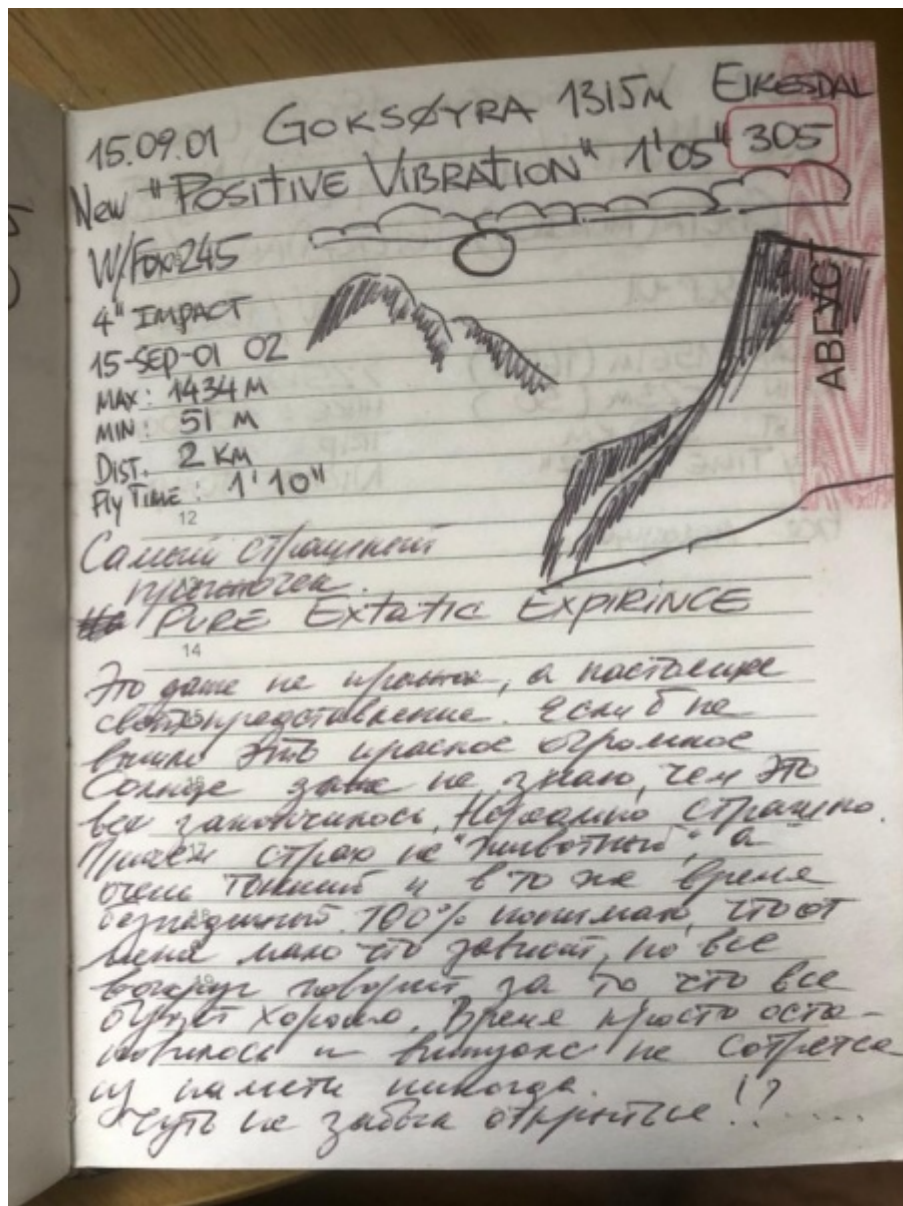 15.09.01 GOKSØYRA 1315M EIKESDAL
New "POSITIVE VIBRATION" 1'05" 305
W/Fox 245
4" IMPACT
15-SEP-01 02
MAX: 1434 M
MIN: 51 M
DIST. 2 KM
Fly TIME: 1'10"
АВГУСТ
12
Самый страшный
прыжочек.
PURE Extatic EXPIRINCE
14
Это даже не прыжок, а настоящее
светопредставление. Если б не
это красное огромное
Солнце даже не знаю, чем это
все закончилось. страшно.
Причем страх не "животный", а
очень тонкий и в то же время
100% понимаю, что от
меня мало что зависит, но все
вокруг говорит за то что все
будет хорошо. Время просто оста-
новилось и не сотрется
из памяти никогда.
Чуть не забыл открыться!!? .....